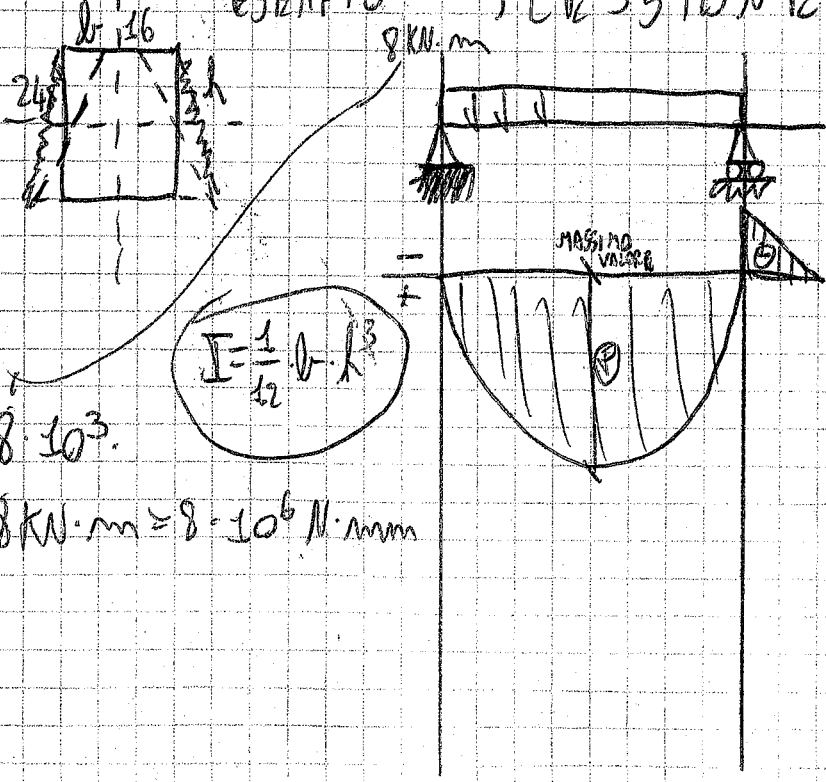 b 16
24 h
8 KN·m
MASSIMO
VALORE
-
+
I = 1/12 · b · h³
8·10³.
8KN·m = 8·10⁶ N·mm